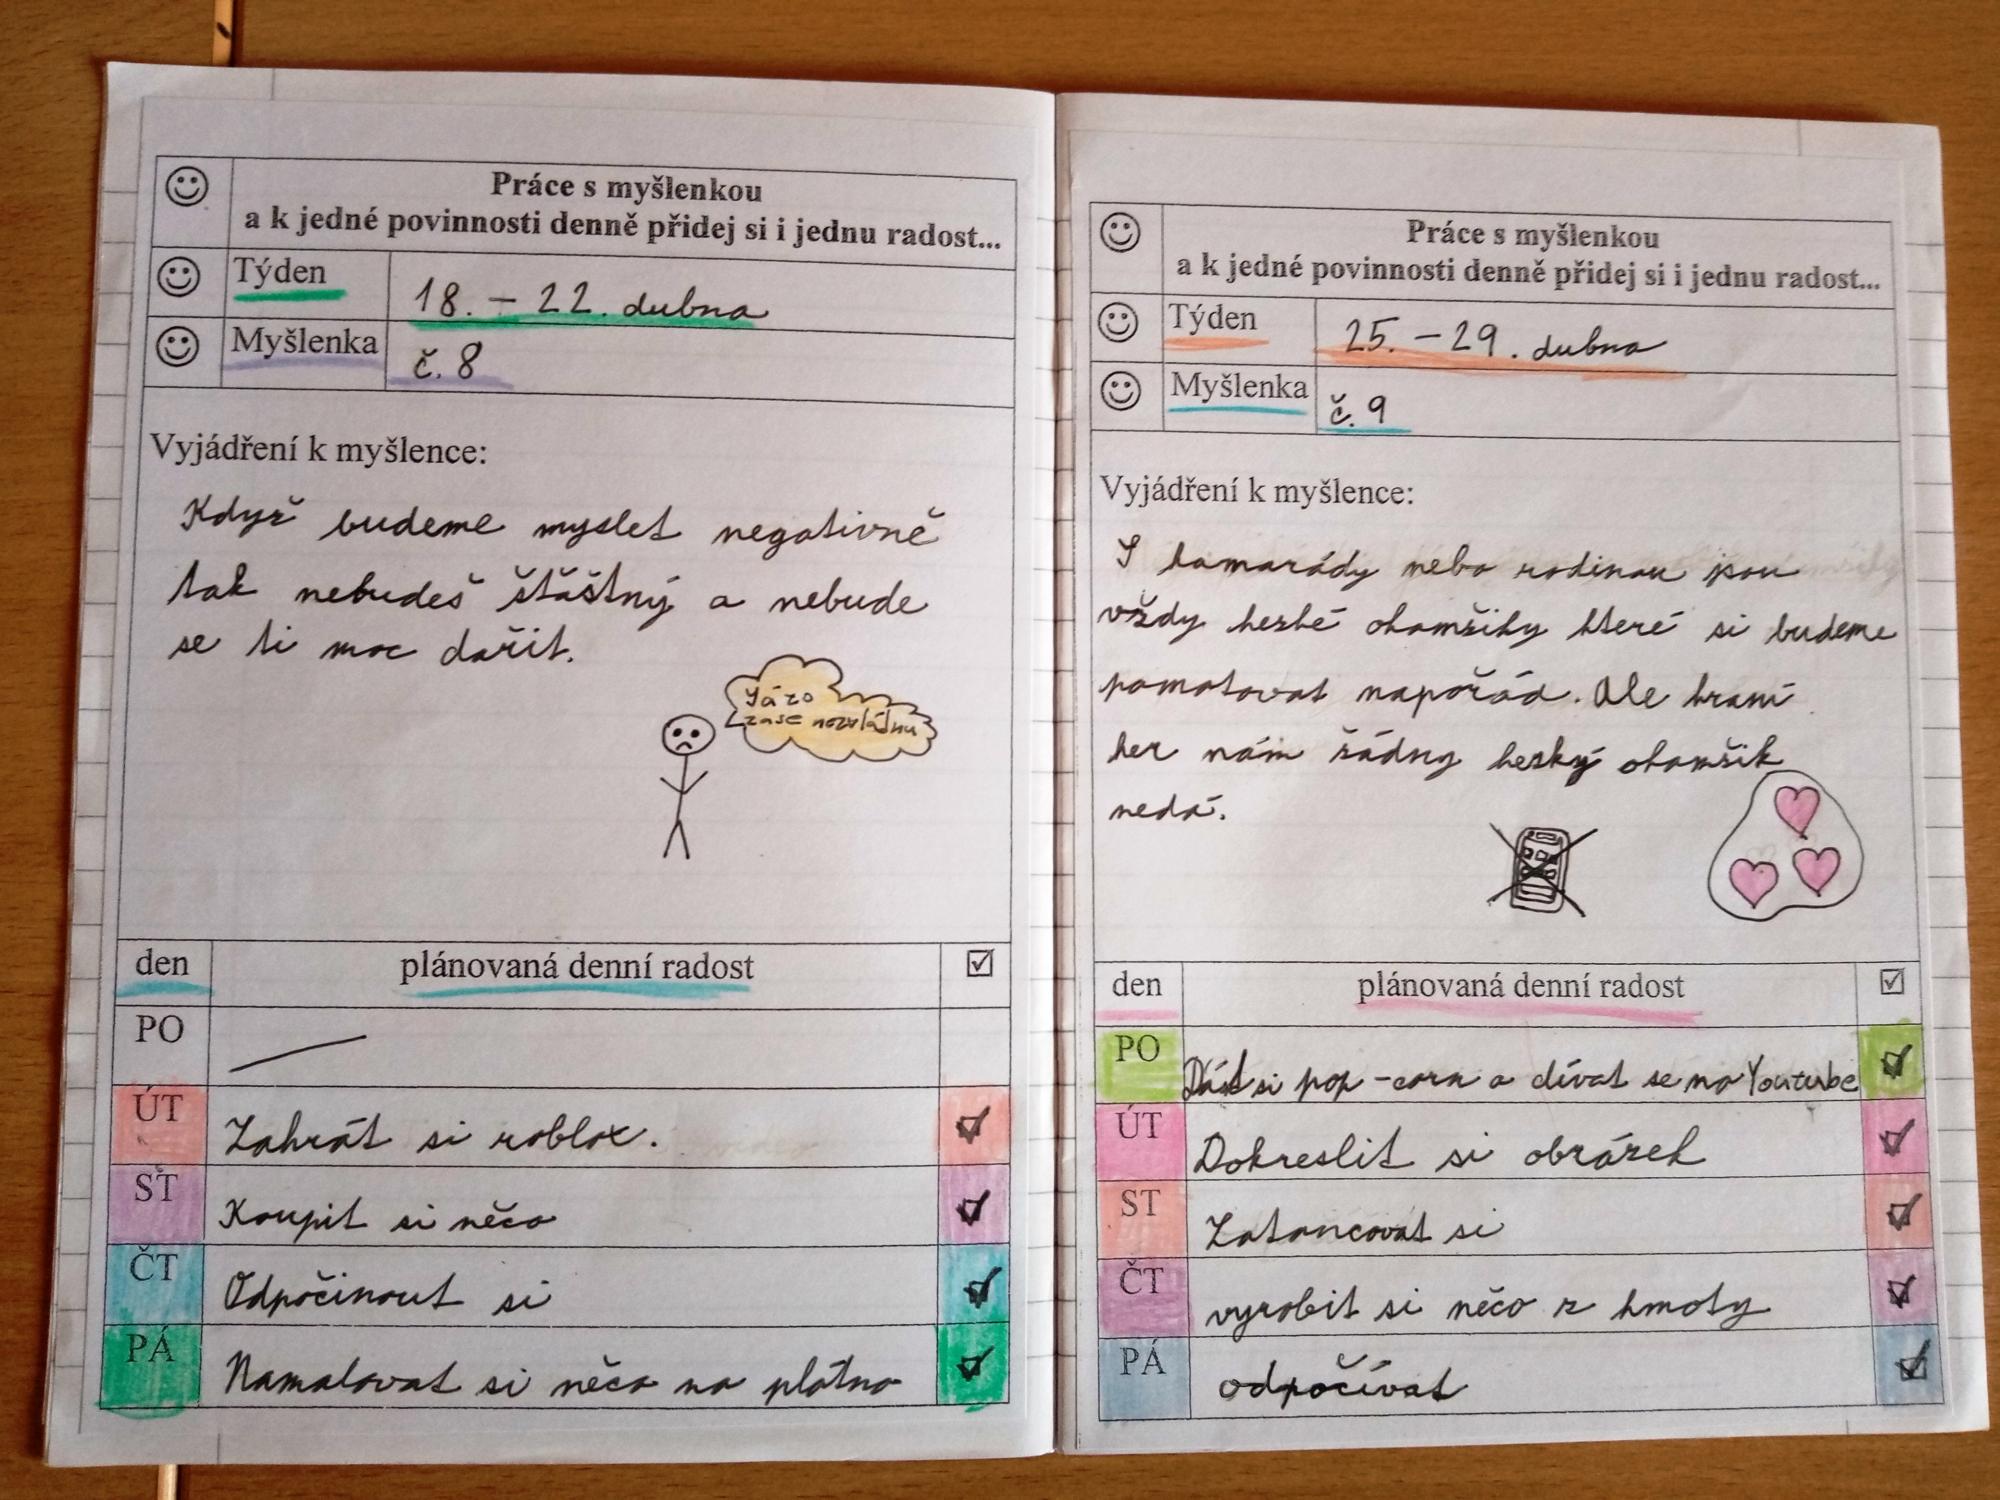 Práce s myšlenkou
a k jedné povinnosti denně přidej si i jednu radost...
Týden 18. – 22. dubna
Myšlenka č. 8
Vyjádření k myšlence:
Když budeme myslet negativně
tak nebudeš šťaštný a nebude
se ti moc dařit.
Já zo
zase nezvládnu
den plánovaná denní radost ☑
PO
ÚT Zahrát si roblox.
ST Koupit si něco
ČT Odpočinout si
PÁ Namalovat si něco na plátno
Práce s myšlenkou
a k jedné povinnosti denně přidej si i jednu radost...
Týden 25. – 29. dubna
Myšlenka č. 9
Vyjádření k myšlence:
S kamarády nebo rodinou jsou
vždy hezké okamžiky které si budeme
pamatovat napořád. Ale hraní
her nám žádny hezký okamžik
nedá.
den plánovaná denní radost ☑
PO Dást si pop-corn a dívat se na Youtube
ÚT Dokreslit si obrázek
ST Zatancovat si
ČT vyrobit si něco z hmoty
PÁ odpočívat